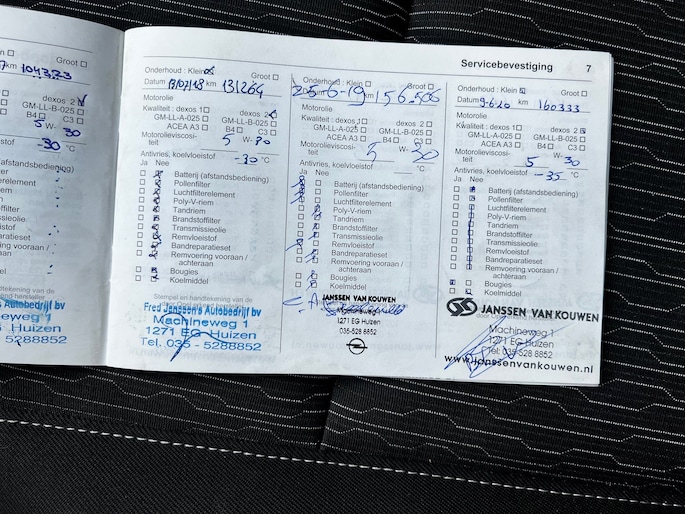 Servicebevestiging 7
Groot
km 104373
dexos 2
GM-LL-B-025
B4 C3
5 W- 30
-30 °C
(afstandsbediening)
Autobedrijf bv
weg 1
Huizen
5288852
Onderhoud : Klein Groot
Datum 13/07/18 km 131264
Motorolie
Kwaliteit : dexos 1 dexos 2
GM-LL-A-025 GM-LL-B-025
ACEA A3 B4 C3
Motorolieviscosi-
teit 5 W- 30
Antivries, koelvloeistof -30 °C
Ja Nee
Batterij (afstandsbediening)
Pollenfilter
Luchtfilterelement
Poly-V-riem
Tandriem
Brandstoffilter
Transmissieolie
Remvloeistof
Bandreparatieset
Remvoering vooraan /
achteraan
Bougies
Koelmiddel
Stempel en handtekening van de
Fred Jenssen's Autobedrijf bv
Machineweg 1
1271 EG Huizen
Tel. 035 - 5288852
Onderhoud : Klein Groot
25-6-19 km 156.506
Motorolie
Kwaliteit : dexos 1 dexos 2
GM-LL-A-025 GM-LL-B-025
ACEA A3 B4 C3
Motorolieviscosi-
teit 5 W- 30
Antivries, koelvloeistof °C
Ja Nee
Batterij (afstandsbediening)
Pollenfilter
Luchtfilterelement
Poly-V-riem
Tandriem
Brandstoffilter
Transmissieolie
Remvloeistof
Bandreparatieset
Remvoering vooraan /
achteraan
Bougies
Koelmiddel
JANSSEN VAN KOUWEN
1271 EG Huizen
035-528 8852
Onderhoud : Klein Groot
Datum 9-6-20 km 160333
Motorolie
Kwaliteit : dexos 1 dexos 2
GM-LL-A-025 GM-LL-B-025
ACEA A3 B4 C3
Motorolieviscosi-
teit 5 W- 30
Antivries, koelvloeistof -35 °C
Ja Nee
Batterij (afstandsbediening)
Pollenfilter
Luchtfilterelement
Poly-V-riem
Tandriem
Brandstoffilter
Transmissieolie
Remvloeistof
Bandreparatieset
Remvoering vooraan /
achteraan
Bougies
Koelmiddel
JANSSEN VAN KOUWEN
Machineweg 1
1271 EG Huizen
Tel: 035 528 8852
www.janssenvankouwen.nl